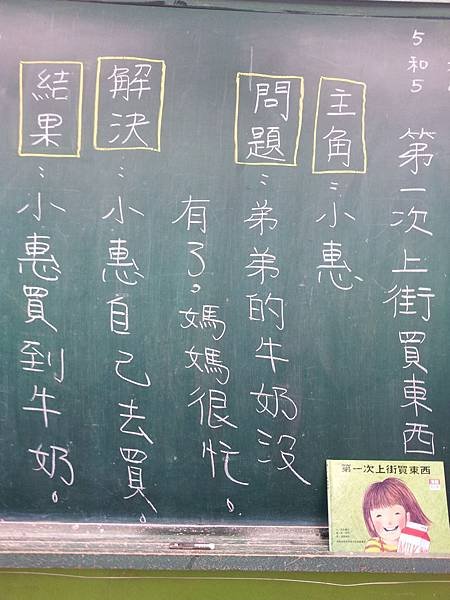 5和5
第一次上街買東西
主角：小惠
問題：弟弟的牛奶沒
有了。媽媽很忙。
解決：小惠自己去買。
結果：小惠買到牛奶。
第一次上街買東西